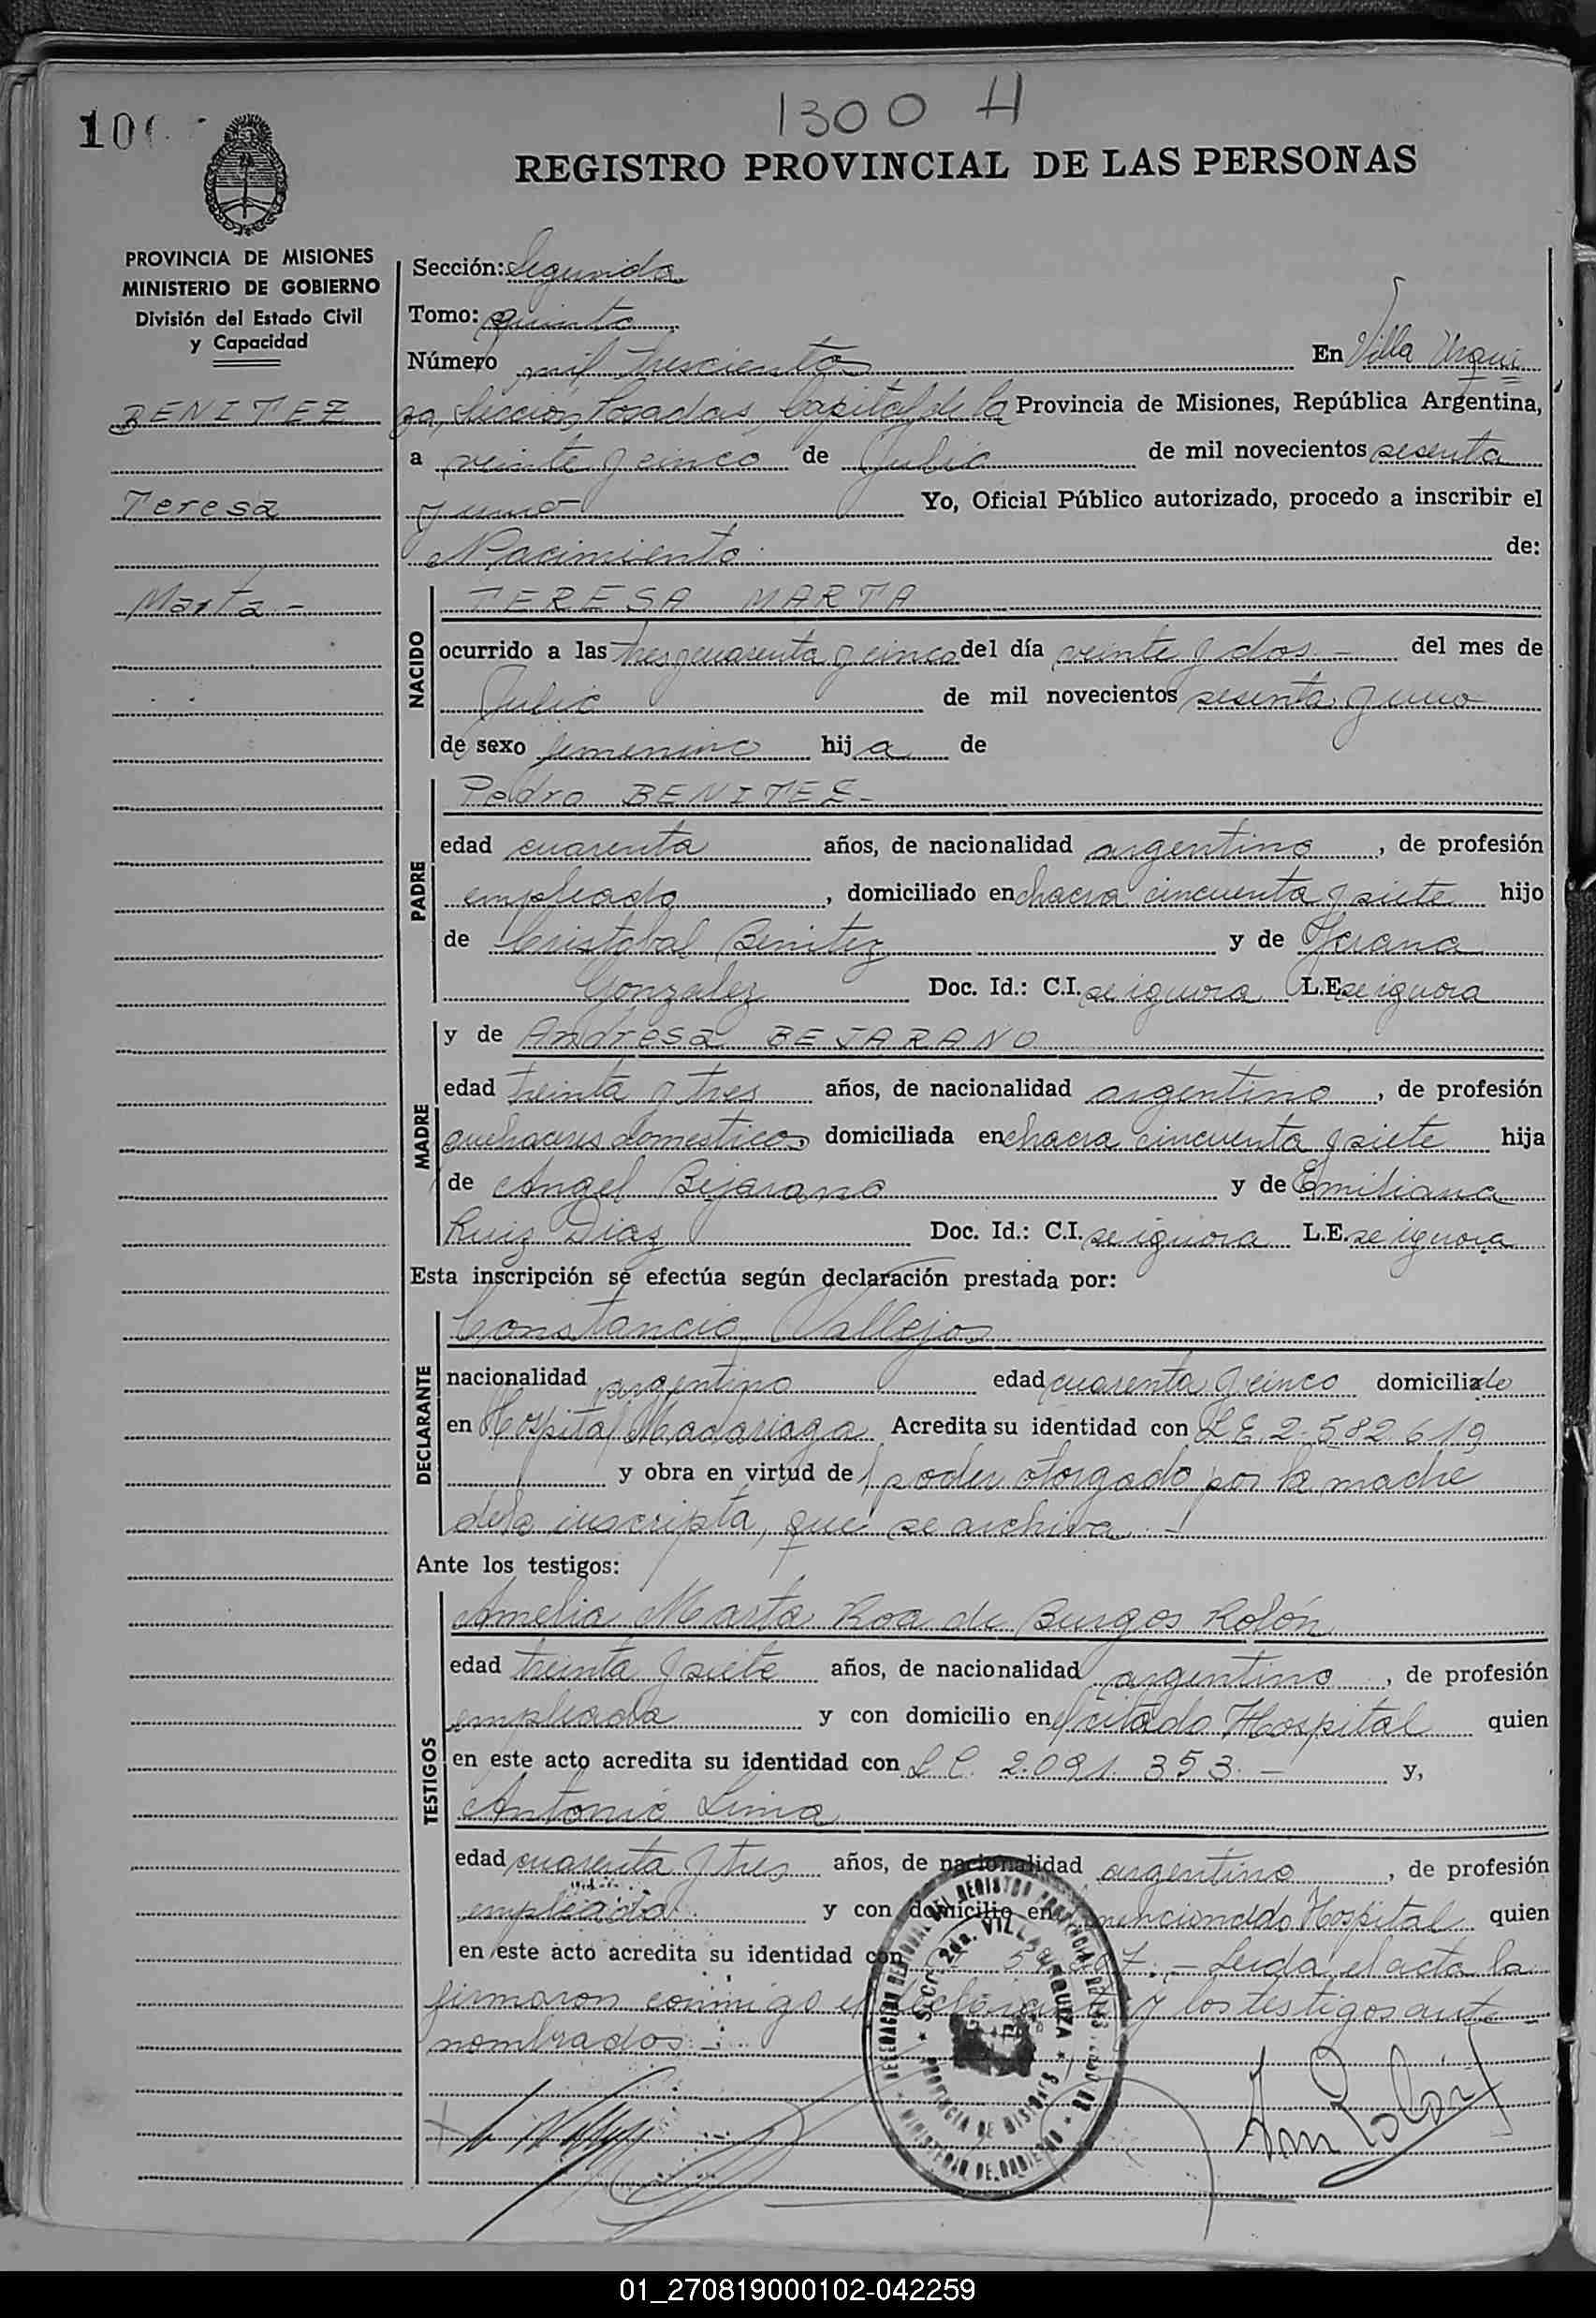 1300 H
10
REGISTRO PROVINCIAL DE LAS PERSONAS
PROVINCIA DE MISIONES
MINISTERIO DE GOBIERNO
División del Estado Civil
y Capacidad
BENITEZ
Teresa
Marta -
Sección: Segunda
Tomo: quinto
Número mil trescientos En Villa Urqui=
za, Sección, Posadas, Capital de la Provincia de Misiones, República Argentina,
a veinte y cinco de Julio de mil novecientos sesenta
y uno - Yo, Oficial Público autorizado, procedo a inscribir el
Nacimiento de:
NACIDO
TERESA MARTA
ocurrido a las tres y cuarenta y cinco del día veinte y dos - del mes de
Julio de mil novecientos sesenta y uno
de sexo femenino hija de
PADRE
Pedro BENITEZ-
edad cuarenta años, de nacionalidad argentino, de profesión
empleado, domiciliado en chacra cincuenta y siete hijo
de Cristobal Benitez y de
Gonzalez Doc. Id.: C.I. se ignora L.E. se ignora
MADRE
y de Andresa BEJARANO
edad treinta y tres años, de nacionalidad argentina, de profesión
quehaceres domesticos, domiciliada en chacra cincuenta y siete hija
de Angel Bejarano y de Emiliana
Ruiz Diaz Doc. Id.: C.I. se ignora L.E. se ignora
Esta inscripción se efectúa según declaración prestada por:
DECLARANTE
Constancio Vallejos
nacionalidad argentino edad cuarenta y cinco domiciliado
en Hospital Madariaga Acredita su identidad con L.E. 2.582.619
y obra en virtud del poder otorgado por la madre
de la inscripta, que se archiva.-
Ante los testigos:
TESTIGOS
Amelia Marta Roa de Burgos Rolón
edad treinta y siete años, de nacionalidad argentina, de profesión
empleada y con domicilio en el citado Hospital quien
en este acto acredita su identidad con L.C. 2.091.353.- y,
Antonio Lima
edad cuarenta y tres años, de nacionalidad argentino, de profesión
empleado y con domicilio en mencionado Hospital quien
en este acto acredita su identidad con .- Leida el acta la
firmaron conmigo el declarante y los testigos ante
nombrados.-
SECC. 2da. VILLA URQUIZA
PROVINCIA DE MISIONES
MINISTERIO DE GOBIERNO
01_270819000102-042259